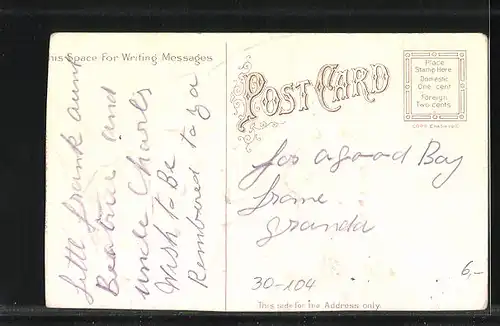 This Space For Writing Messages
Little Frank aunt
Beatrice and
uncle Charls
Wish To Be
Rembered to ya
POST CARD
Place
Stamp Here
Domestic
One cent
Foreign
Two cents
for a good Bay
frome
granda
30-104
6,-
This side For The Address only.